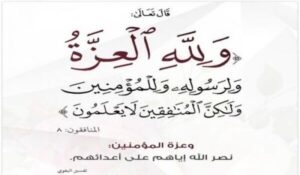 قَالَ تَعَالَى:
﴿وَلِلَّهِ ٱلْعِزَّةُ
وَلِرَسُولِهِۦ وَلِلْمُؤْمِنِينَ
وَلَٰكِنَّ ٱلْمُنَٰفِقِينَ لَا يَعْلَمُونَ﴾
المنافقون: ٨
وعزة المؤمنين:
نصر الله إياهم على أعدائهم.
تفسير البغوي